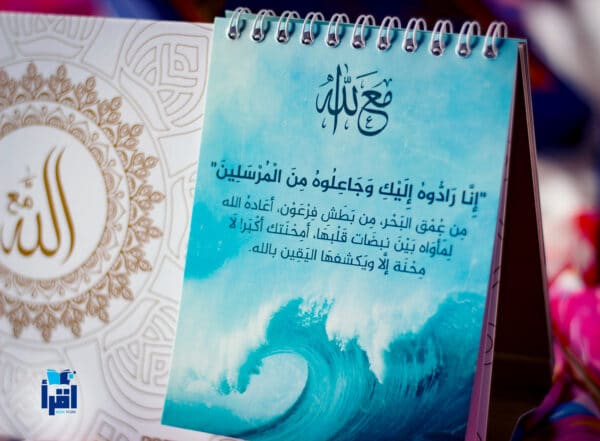 مع الله
"إِنَّا رَادُّوهُ إِلَيْكِ وَجَاعِلُوهُ مِنَ الْمُرْسَلِينَ"
مِن عُمْقِ البَحْرِ، مِن بَطْشِ فِرْعَوْن، أَعَادَهُ الله
لِمَأْوَاه بَيْنَ نبضَات قَلْبِهَا، أَمِحْنَتك أَكْبَر! لَا
مِحْنَة إلَّا ويَكشفهَا اليَقِين بالله.
مع الله
اقرأ